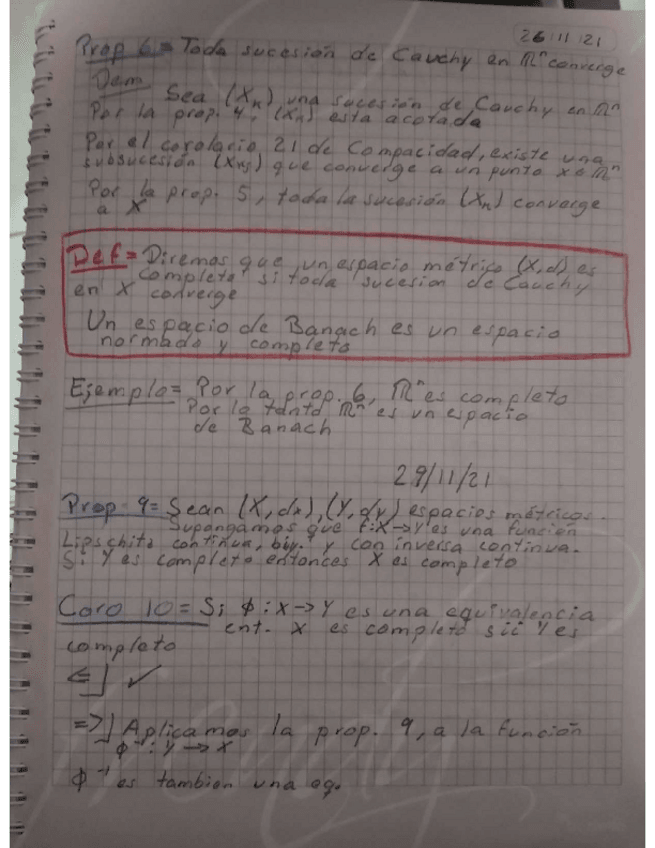 26/11/21
Prop 6= Toda sucesión de Cauchy en ℝⁿ converge
Dem
Sea (Xₖ) una sucesión de Cauchy en ℝⁿ
Por la prop. 4, (Xₖ) esta acotada
Por el corolario 21 de Compacidad, existe una
subsucesión (Xₖⱼ) que converge a un punto x∈ℝⁿ
Por la prop. 5, toda la sucesión (Xₖ) converge
a X
Def= Diremos que un espacio métrico (X,d) es
completo si toda sucesion de Cauchy
en X converge
Un espacio de Banach es un espacio
normado y completo
Ejemplo= Por la prop. 6, ℝⁿ es completo
Por lo tanto ℝⁿ es un espacio
de Banach
29/11/21
Prop. 9= Sean (X,dx), (Y,dy) espacios métricos.
Supongamos que f:X→Y es una función
Lipschitz continua, biy. y con inversa continua.
Si Y es completo entonces X es completo
Coro 10= Si ϕ:X→Y es una equivalencia
ent. X es completo sii Y es
completo
⇐] ✓
=>] Aplicamos la prop. 9, a la función
ϕ⁻¹:Y→X
ϕ⁻¹ es tambien una eq.